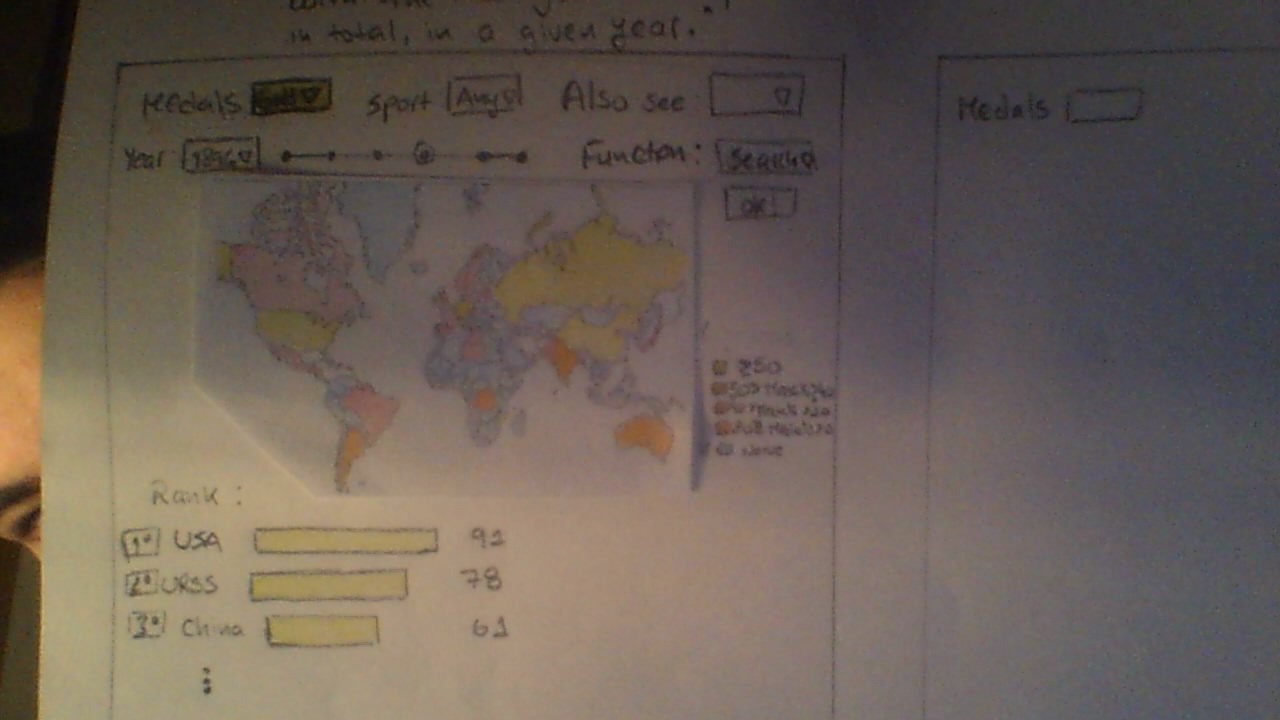 in total, in a given year."
Medals Gold Sport Any Also see
Year 1896 Functon: Search
OK
≥50
None
Rank:
1º USA 91
2º URSS 78
3º China 61
Medals